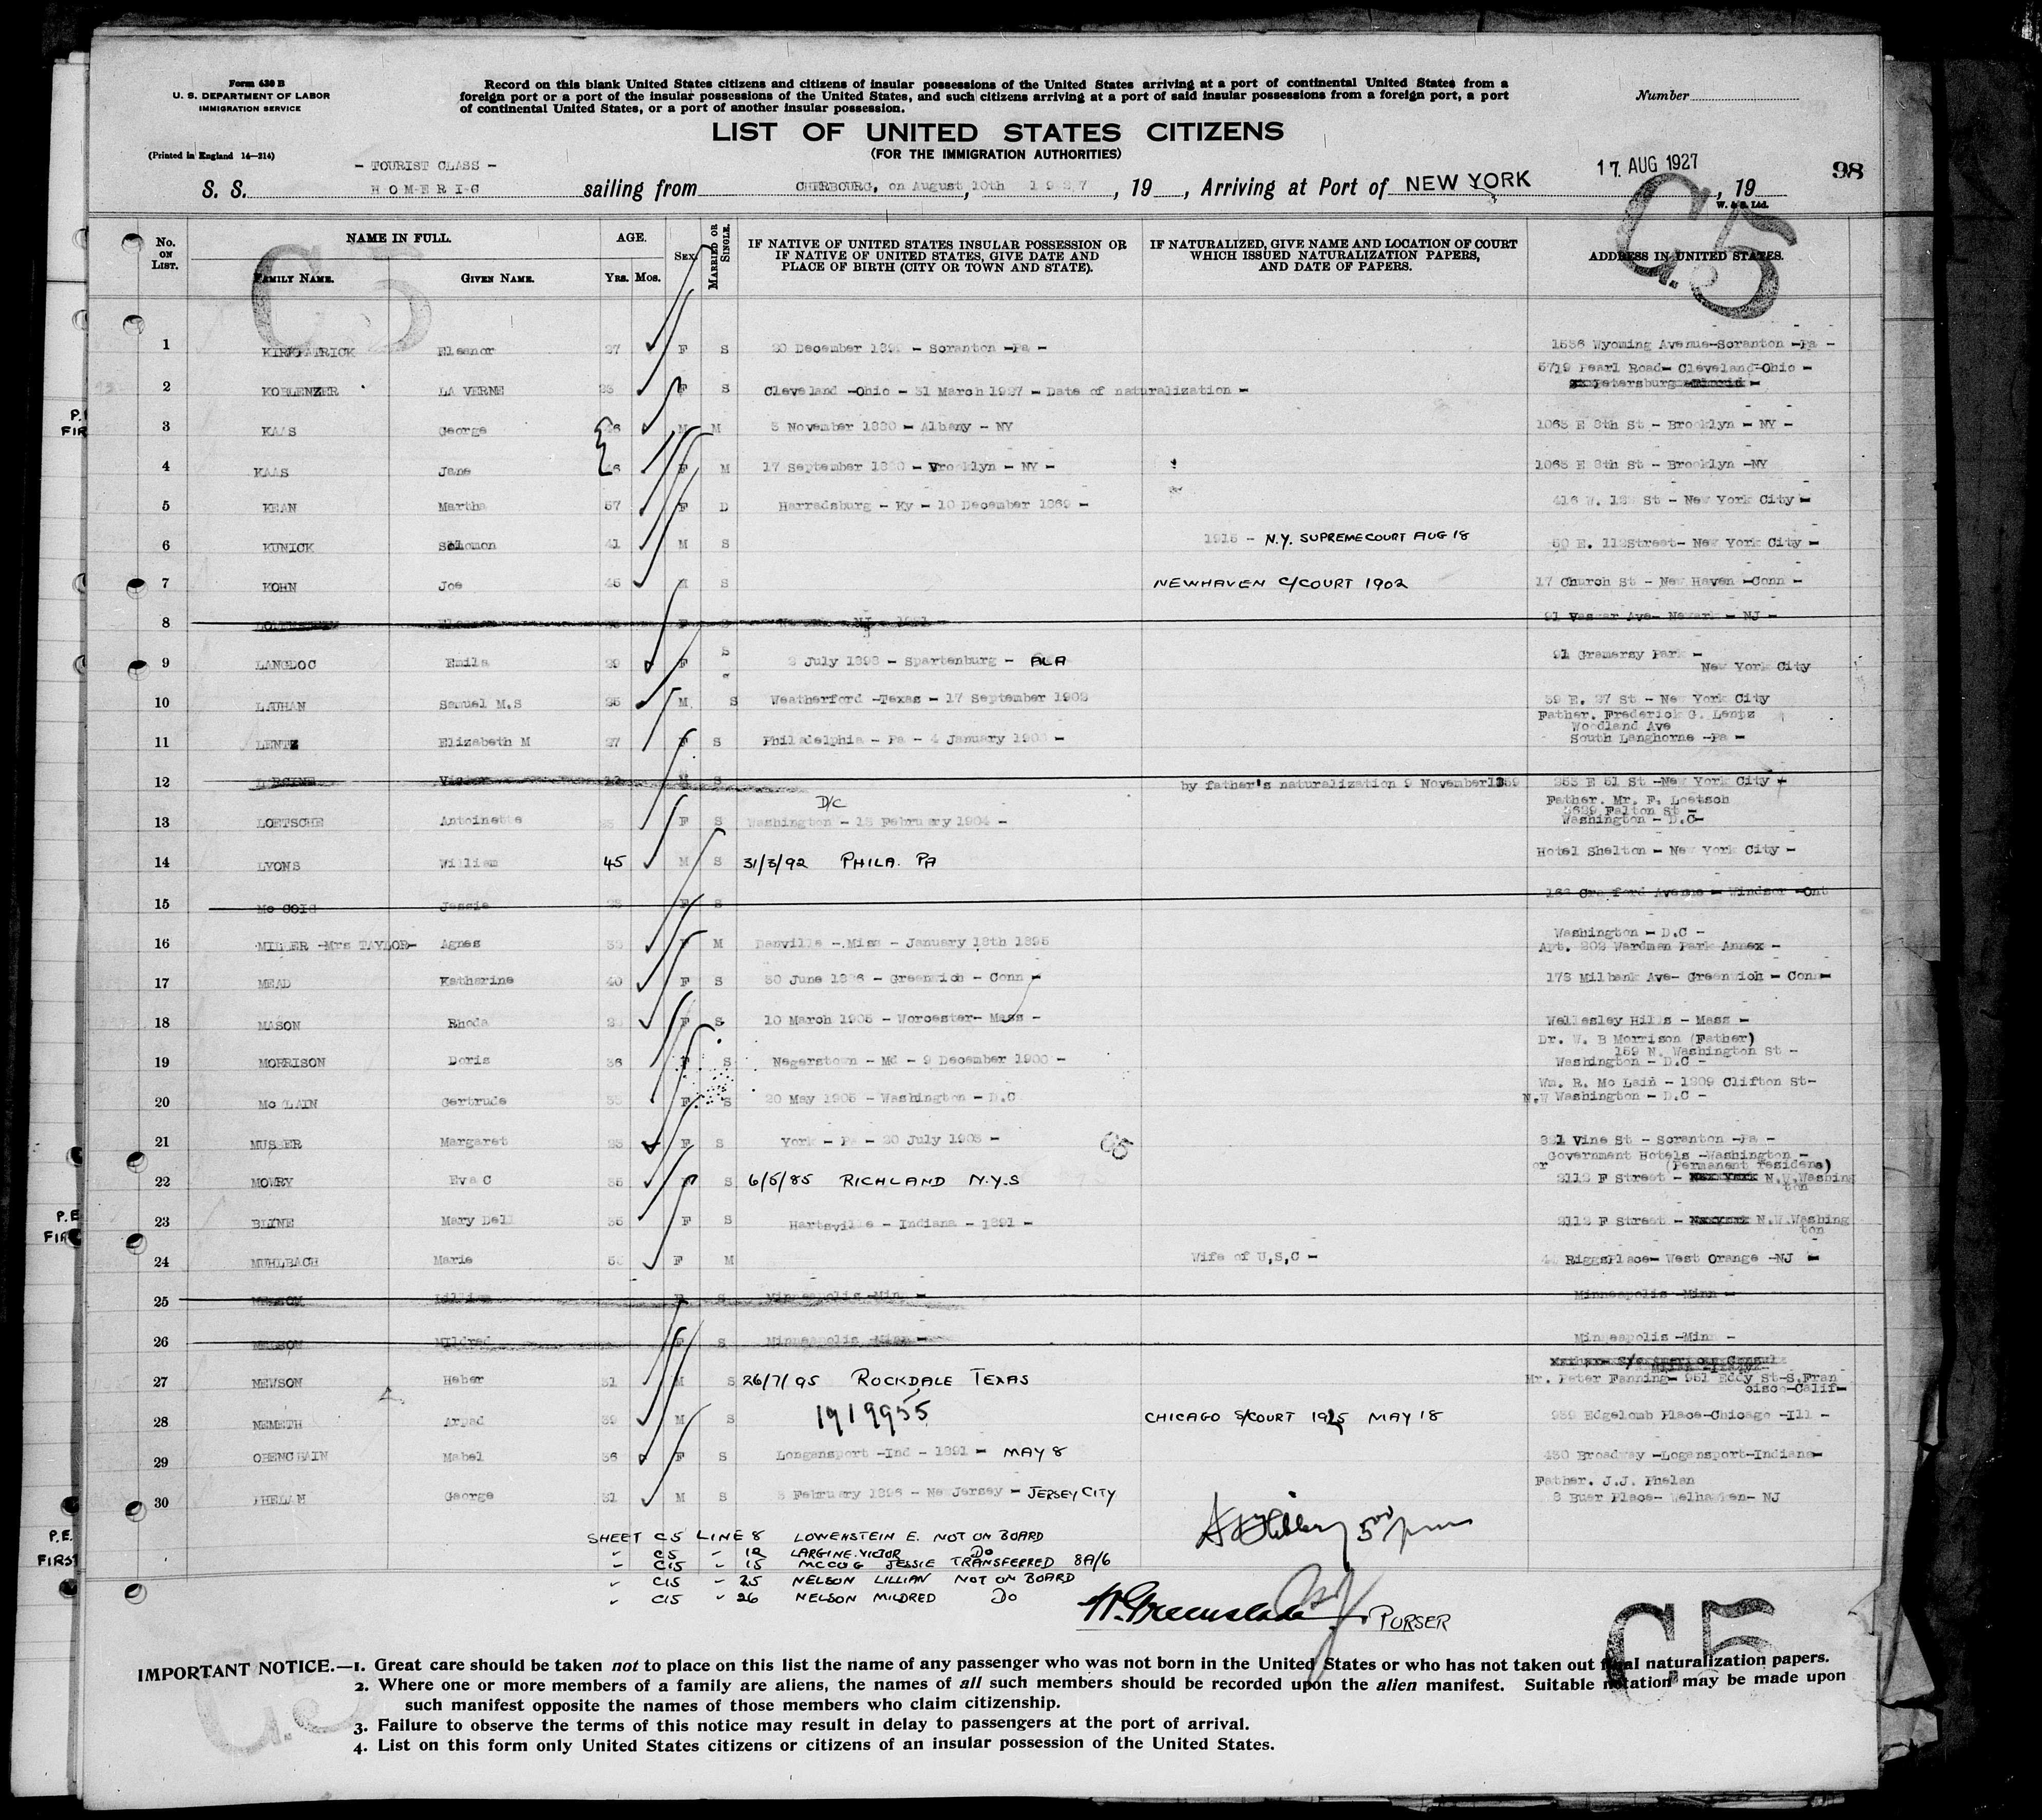 Form 630 B
U. S. DEPARTMENT OF LABOR
IMMIGRATION SERVICE
(Printed in England 14—214)
Record on this blank United States citizens and citizens of insular possessions of the United States arriving at a port of continental United States from a
foreign port or a port of the insular possessions of the United States, and such citizens arriving at a port of said insular possessions from a foreign port, a port
of continental United States, or a port of another insular possession.
Number
LIST OF UNITED STATES CITIZENS
(FOR THE IMMIGRATION AUTHORITIES)
- TOURIST CLASS -
S. S. HOMERIC sailing from CHERBOURG, on August 10th 1927, 19 , Arriving at Port of NEW YORK 17 AUG 1927, 19
98
W. & S. Ltd.
C5
C.5
No. ON LIST. NAME IN FULL. FAMILY NAME. GIVEN NAME. AGE. Yrs. Mos. SEX. MARRIED OR SINGLE. IF NATIVE OF UNITED STATES INSULAR POSSESSION OR IF NATIVE OF UNITED STATES, GIVE DATE AND PLACE OF BIRTH (CITY OR TOWN AND STATE). IF NATURALIZED, GIVE NAME AND LOCATION OF COURT WHICH ISSUED NATURALIZATION PAPERS, AND DATE OF PAPERS. ADDRESS IN UNITED STATES.
1 KIRKPATRICK Eleanor 27 F S 20 December 189 - Scranton -Pa - 1536 Wyoming Avenue-Scranton -Pa -
2 KOBLENZER LA VERNE F S Cleveland -Ohio - 31 March 1927 - Date of naturalization - 3719 Pearl Road- Cleveland-Ohio -
3 KAAS George 46 M M 3 November 1880 - Albany - NY 1063 E 8th St - Brooklyn - NY -
4 KAAS Jane 46 F M 17 September 1880 - Brooklyn - NY - 1063 E 8th St - Brooklyn -NY
5 KEAN Martha 57 F D Harradsburg - Ky - 10 December 1869 - 416 W. 12 St - New York City -
6 KUNICK Solomon 41 M S 1915 - N.Y. SUPREME COURT AUG 18 50 E. 112Street- New York City -
7 KOHN Joe 45 M S NEWHAVEN C/COURT 1902 17 Church St - New Haven -Conn -
8 F S 91 Vassar Ave- Newark - NJ -
9 LANGDOC Emila 29 F S 2 July 1898 - Spartenburg - ALA 91 Gramersy Park -
New York City
10 LAUHAN Samuel M.S 25 M S Weatherford -Texas - 17 September 1902 39 E. 27 St - New York City
11 LENTZ Elizabeth M 27 F S Philadelphia - Pa - 4 January 190 - Father. Frederick G. Lentz
Woodland Ave
South Langhorne -Pa -
12 Victor M S by father's naturalization 9 November 253 E 51 St -New York City
13 LOETSCHE Antoinette F S D/C Washington - 18 February 1904 - Father. Mr. F. Loetsch
3629 Fulton St -
Washington - D.C-
14 LYONS William 45 M S 31/3/92 PHILA. PA Hotel Shelton - New York City -
15 Mc COIG Jessie F S 163 Crawford Avenue - Windsor -Ont
16 MILLER -Mrs TAYLOR- Agnes F M Danville - Miss - January 18th 1895 Washington - D.C -
Apt. 202 Wardman Park Annex -
17 MEAD Katharine 40 F S 30 June 1886 - Greenwich - Conn - 178 Milbank Ave- Greenwich - Conn-
18 MASON Rhoda F S 10 March 1905 - Worcester- Mass - Wellesley Hills - Mass -
19 MORRISON Doris 36 F S Negerstown - Md - 9 December 1900 - Dr. W. B Morrison (Father)
159 N. Washington St -
Washington - D.C -
20 Mc LAIN Gertrude F S 20 May 1905 - Washington - D.C Wm. R. Mc Lain - 1809 Clifton St-
N.W Washington - D.C -
21 MUSSER Margaret 23 F S York - Pa - 20 July 1903 - 821 Vine St - Scranton -Pa -
C5
22 MOWRY Eva C 35 F S 6/5/85 RICHLAND N.Y.S Government Hotels -Washington -
or (Permanent residens)
2112 F Street - N.W.Washing
ton
23 BLINE Mary Dell 36 F S Hartsville - Indiana - 1891 - 2112 F Street - N.W.Washing
ton
24 MUHLBACH Marie F M Wife of U,S,C - RiggsPlace- West Orange -NJ -
25 NELSON Lillian F S Minneapolis -Min - Minneapolis -Minn -
26 NELSON Mildred F S Minneapolis -Minn - Minneapolis -Minn -
27 NEWSON Heber 31 M S 26/7/95 ROCKDALE TEXAS Mr. Peter Fanning- 951 Eddy St-S.Fran
cisco-Calif-
28 NEMETH Arpad 39 M S 1919955 CHICAGO S/COURT 1925 MAY 18 939 Edgelomb Place-Chicago -Ill -
29 OBENCHAIN Mabel 36 F S Longansport -Ind - 1891 - MAY 8 430 Broadway -Logansport-Indiana-
30 PHELAN George 31 M S 8 February 1896 - New Jersey - JERSEY CITY Father. J.J. Phelan
8 Buer Place- Welhawken- NJ
SHEET C5 LINE 8 LOWENSTEIN E. NOT ON BOARD
" C5 " 12 LARGINE. VICTOR DO
" C15 " 15 MCCOG JESSIE TRANSFERRED 8A/6
" C15 " 25 NELSON LILLIAN NOT ON BOARD
" C15 " 26 NELSON MILDRED DO
PURSER
C5
C.5
IMPORTANT NOTICE.—1. Great care should be taken not to place on this list the name of any passenger who was not born in the United States or who has not taken out final naturalization papers.
2. Where one or more members of a family are aliens, the names of all such members should be recorded upon the alien manifest. Suitable notation may be made upon
such manifest opposite the names of those members who claim citizenship.
3. Failure to observe the terms of this notice may result in delay to passengers at the port of arrival.
4. List on this form only United States citizens or citizens of an insular possession of the United States.
P.E.
FIRST